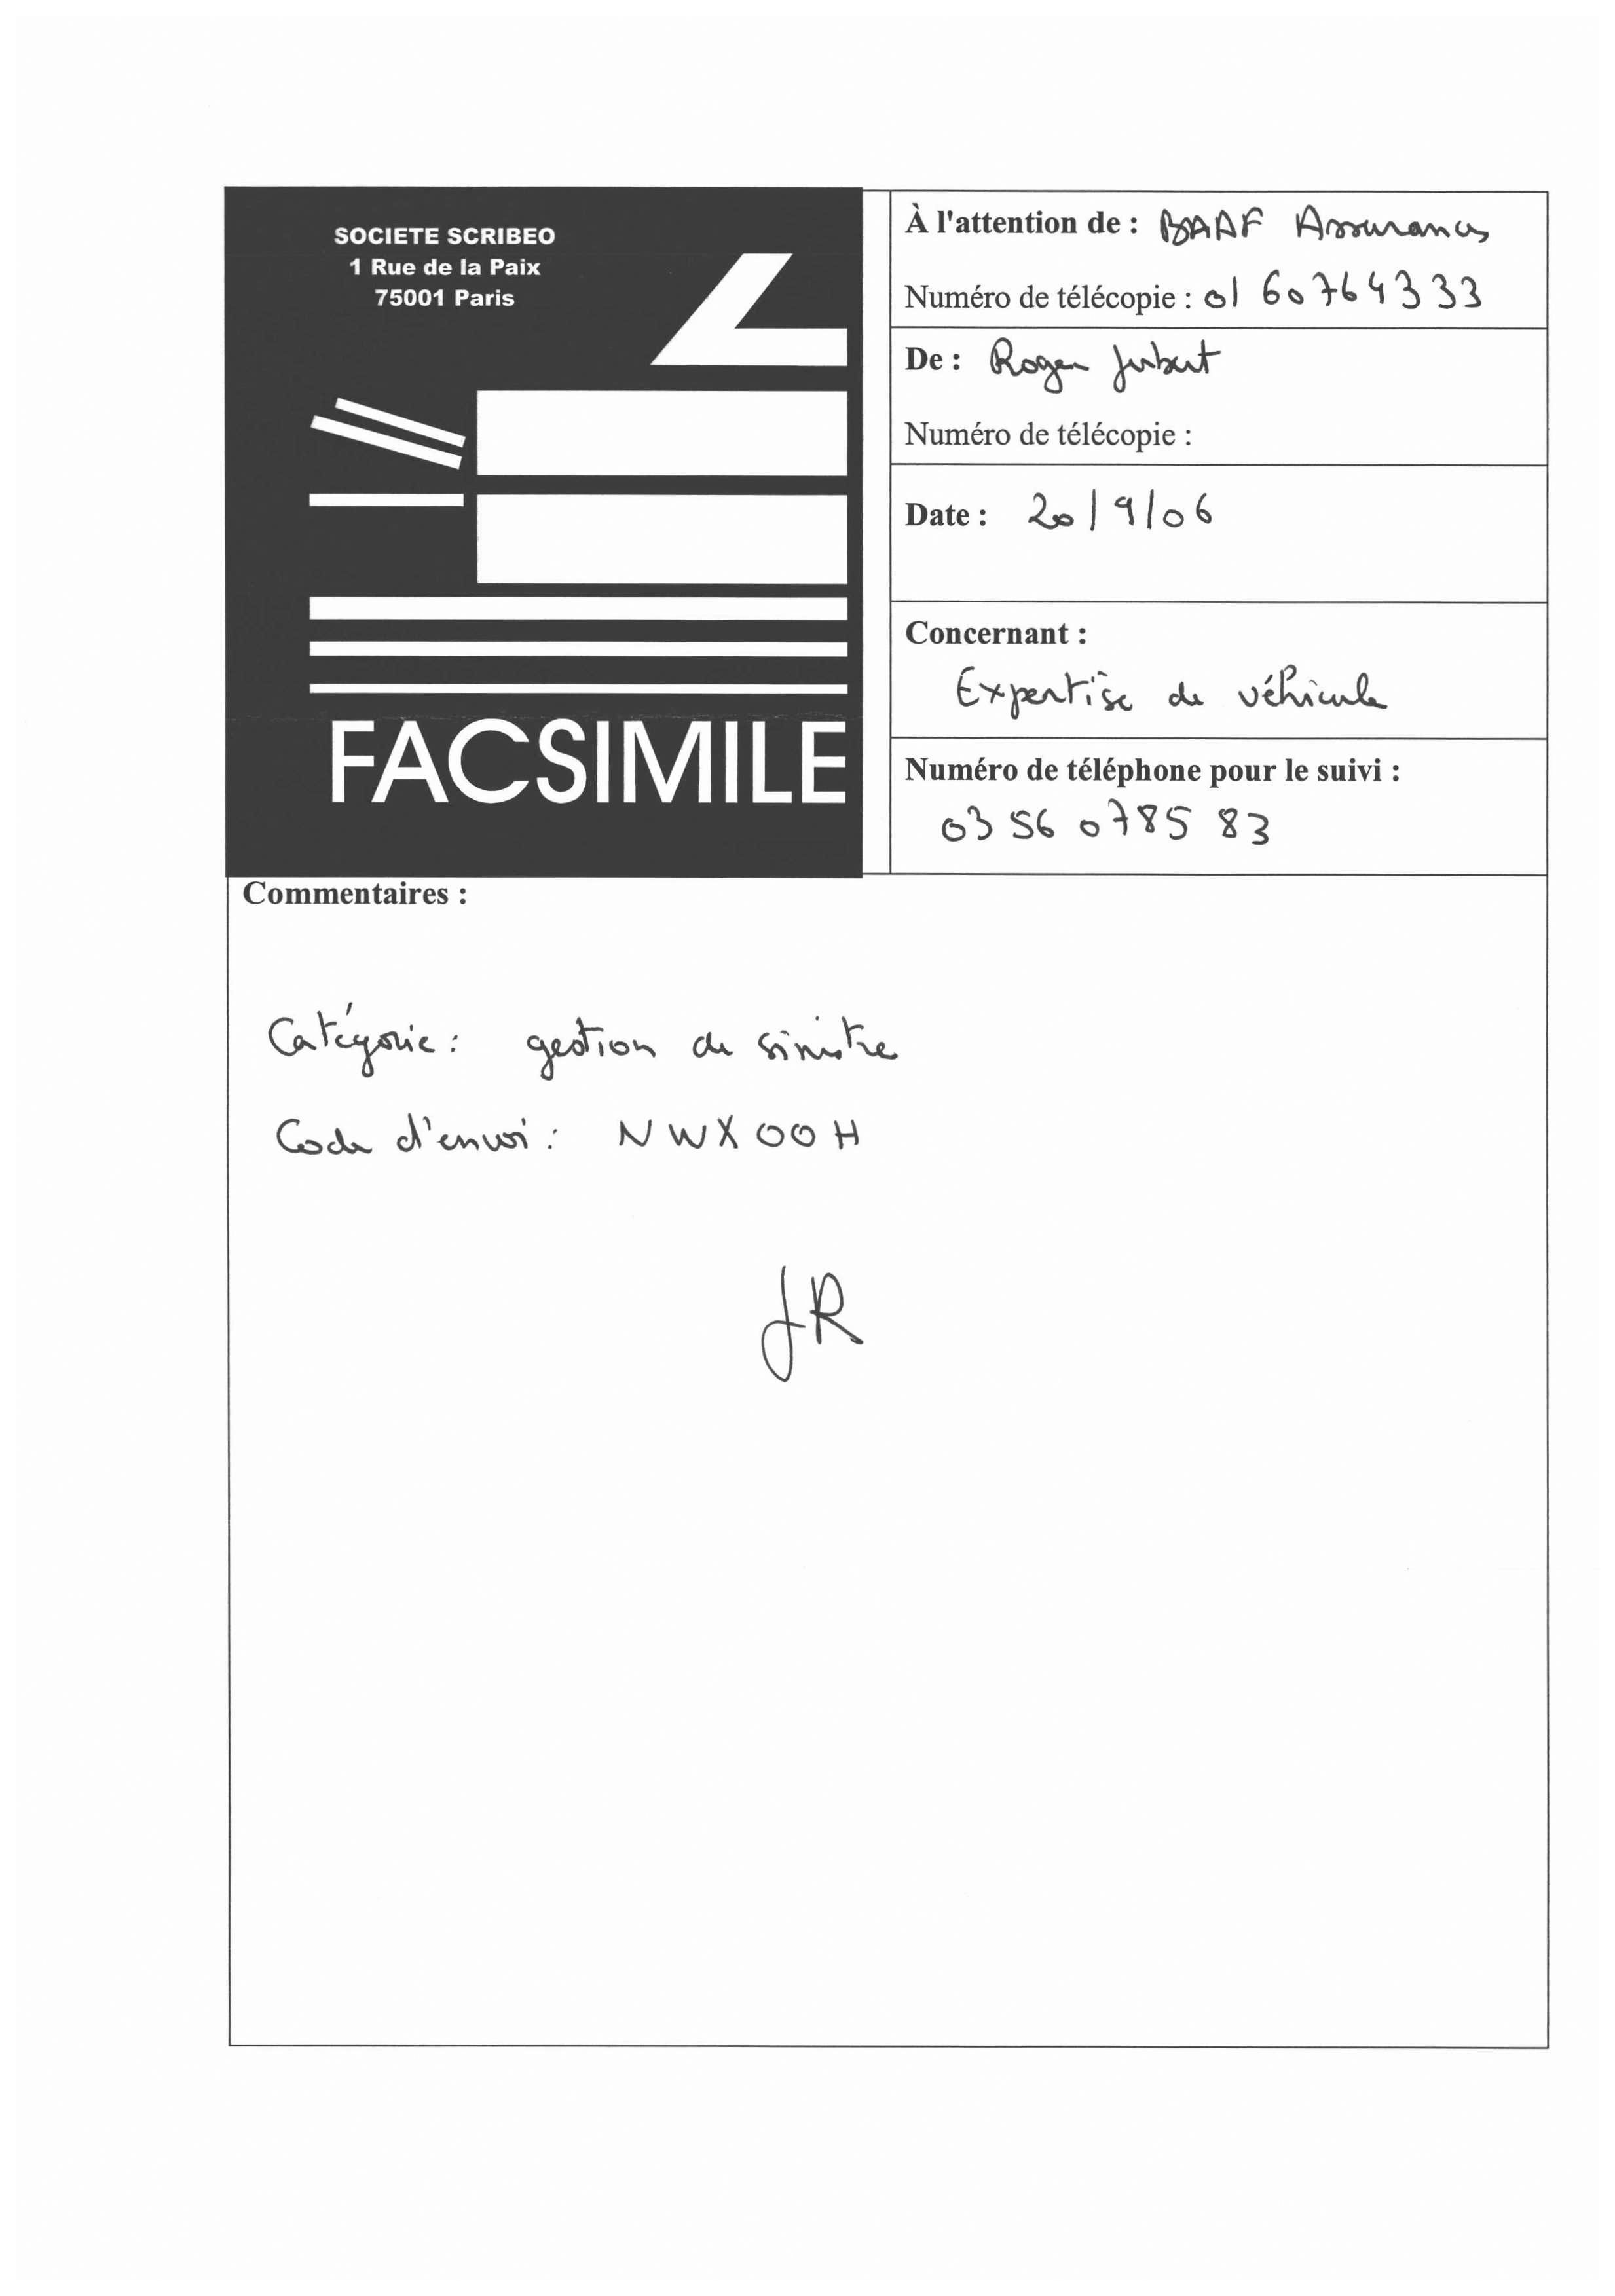 SOCIETE SCRIBEO
1 Rue de la Paix
75001 Paris
FACSIMILE
À l'attention de : BAAF Assurances
Numéro de télécopie : 01 60764333
De : Roger Jubert
Numéro de télécopie :
Date : 20/9/06
Concernant :
Expertise de véhicule
Numéro de téléphone pour le suivi :
03 56 0785 83
Commentaires :
Catégorie : gestion de sinistre
Code d'envoi : NWX00H
JR